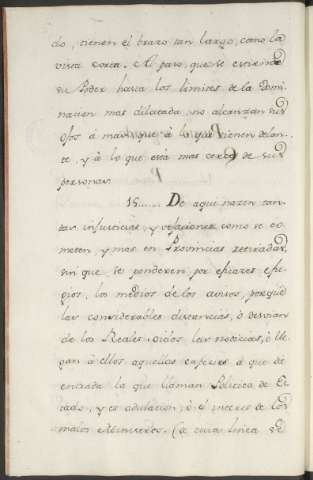 do, tienen el brazo tan largo, como la
vista corta. Al paso, que se estiende
su Poder hasta los limites de la Domi-
nacion mas dilatada, no alcanzan sus
ojos á mas, que á lo que tienen delan-
te, y á lo que está mas cerca de sus
personas.
15...... De aqui nacen tan-
tas injusticias, y vejaciones como se co-
meten, y mas en Provincias retiradas,
sin que se ponderen por eficaces
los medios de los avisos, porque
las considerables distancias, ó desvian
de los Reales oidos las noticias, ó lle-
gan á ellos aquellas especies á que dé
entrada lo que llaman Politica de Es-
tado, y es adulacion, ó el interes de los
malos Ministros. (de cuia linea se